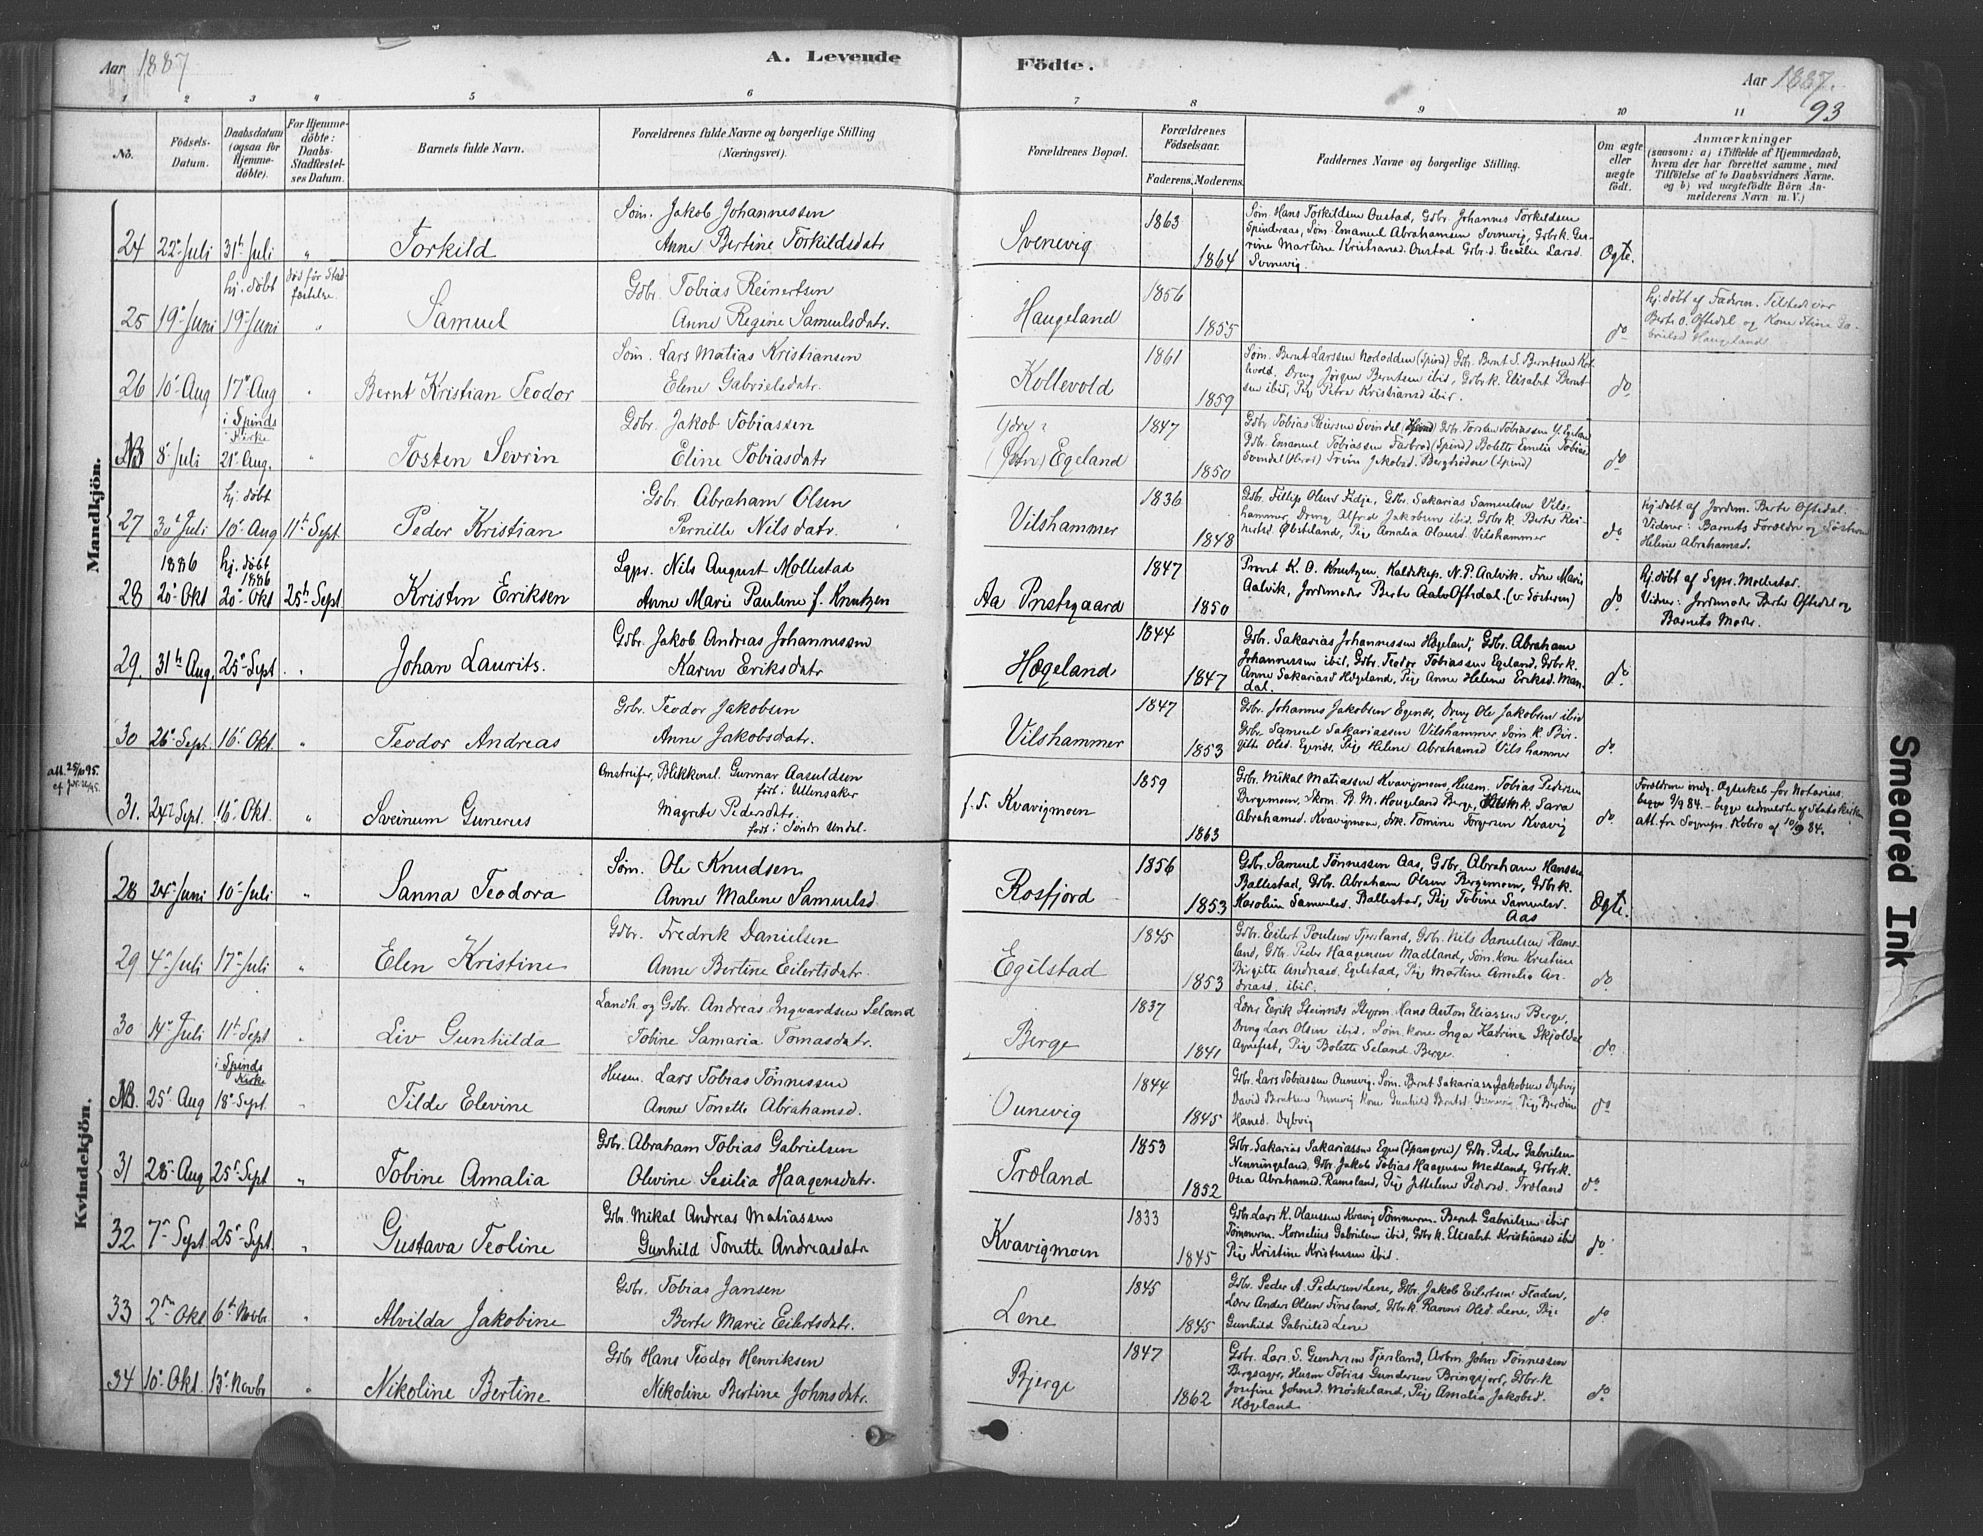 Aar 1887
A. Levende
Födte.
Aar 1887.
93
1 2 3 4 5 6 7 8 9 10 11
No.
Födsels-Datum.
Daabsdatum (ogsaa for Hjemme-döbte).
For Hjemme-döbte: Daabs-Stadfæstel-ses Datum.
Barnets fulde Navn.
Forældrenes fulde Navne og borgerlige Stilling (Næringsvei).
Forældrenes Bopæl.
Forældrenes Födselsaar.
Faderens. Moderens.
Faddernes Navne og borgerlige Stilling.
Om ægte eller uægte födt.
Anmærkninger
(saasom: a) i Tilfælde af Hjemmedaab,
hvem der har forrettet samme, med
Tilföielse af to Daabsvidners Navne.
og b) ved uægtefödte Börn An-
melderens Navn m. V.)
Mandkjön.
24 22 Juli 31 Juli " Torkild
Søm. Jakob Johannessen
Anne Bertine Torkildsdatr
Svenevig 1863 1864
Søm Hans Torkildsen Ourstad, Gdbr. Johannes Torkildsen
Spindraas, Søm Emanuel Abrahamsen Svenevig, Gdbr.k. Ger-
rine Martine Kristiansd. Ourstad Gdbr.d. Cecilie Larsd.
Svenevig.
Ægte.
25 19 Juni hj. døbt 19 Juni død før Stad-fæstelse. " Samuel
Gdbr. Tobias Reinertsen
Anne Regine Samuelsdatr.
Haugeland 1856 1855 do
hj. døbt af Faderen. Tilstede var
Berte O. Oftedal og Kone Stine Ga-
brielsd Haugeland
26 10 Aug 17 Aug " Bernt Kristian Teodor
Søm. Lars Matias Kristiansen
Elene Gabrielsdatr.
Kollevold 1861 1859
Søm. Bernt Larssen Nordodden (Spind) Gdbr. Bernt S. Berntsen Kol-
levold. Dreng Jørgen Berntsen ibid, Gdbr.k. Elisabt Bernt-
sen ibid, Pig Petra Kristiansd ibid.
do
NB 8 Juli i Spinds Kirke 21 Aug. " Tosten Sevrin
Gdbr. Jakob Tobiassen
Eline Tobiasdatr
Ydre (Østn) Egeland 1847 1850
Gdbr Tobias Reiersen Svindel (Spind) Gdbr. Torsten Tobiassen Y. Egeland
Gdbr. Emanuel Tobiassen Farbrod (Spind) Bolette Emilie Tobias
Trine Jakobsd. (Spind)
do
27 30 Juli hj. døbt 10 Aug 11 Sept. Peder Kristian
Gdbr. Abraham Olsen
Pernille Nilsdatr.
Vilshammer 1836 1848
Gdbr. Fillip Olsen Kidje, Gdbr. Sakarias Samuelsen Vils-
hammer, Dreng Alfred Jakobsen ibid. Gdbr.k. Berte Rei-
nertsd. Øbsteland, Pige Amalia Olausd. Vilshammer
do
hj. døbt af Jordem. Berte Oftedal.
Vidner: Barnets Forældre og Søsteren
Helene Abrahamsd.
28 1886 20 Okt hj. døbt 1886 20 Okt 25 Sept Kristen Eriksen
Sgpr. Nils August Mollestad
Anne Marie Pauline f. Knutzen
Aa Præstegaard 1847 1850
Provst K. O. Knutzen, Kaldskap. N. P. Aalvik. Fru Marie
Aalvik, Jordemoder Berte Oftedal. (v Søsteren)
do
hj. døbt af Sgpr. Mollestad.
Vidner: Jordemoder Berte Oftedal og
Barnets Moder.
29. 31 Aug. 25 Sept " Johan Laurits.
Gdbr. Jakob Andreas Johannessen
Karen Eriksdatr
Hægeland 1844 1847
Gdbr. Sakarias Johannessen Hægeland, Gdbr. Abraham
Johannessen ibid, Gdbr. Teodor Tobiassen Egeland, Gdbr.k.
Anne Sakariasd Hægeland, Pige Anne Helene Eriksd. Man-
dal.
do
30 26 Sept. 16 Okt. " Teodor Andreas
Gdbr. Teodor Jakobsen
Anne Jakobsdatr.
Vilshammer 1847 1853
Gdbr. Johannes Jakobsen Egenes, Dreng Ole Jakobsen ibid
Gdbr. Samuel Sakariassen Vilshammer Søm. k. Bir-
gitte Olsd. Egenes, Pige Helene Abrahamsd Vilshammer
do
att. 25/10 95.
31. 24 Sept. 16 Okt. " Sveinum Gunerus
Omstreifer, Blikkensl. Gunnar Aasuldsen
født i Ullensaker
Magrete Pedersdatr.
født i Søndre Undal.
f. T. Kvavigmoen 1859 1863
Gdbr. Mikal Matiassen Kvavigmoen, Husm. Tobias Pedersen
Bergemoen, Skom. B. M. Haugeland Berge, Husm.k. Sara
Abrahamsd. Kvavigmoen, Tomine Torgersen Kvavig
do
Forældrene indg. Ægteskab for Notarius.
begge 9/9 84. - begge udmeldte af Statskirken
att. fra Sogneprs. Kobro af 10/9 84.
Kvindekjön.
28 24 Juni 10 Juli " Sanna Teodora
Søm. Ole Knudsen
Anne Malene Samuelsd.
Rosfjord 1856 1853
Gdbr. Samuel Tønnessen Aas, Gdbr. Abraham Hanssen
Ballestad, Gdbr. Abraham Olsen Bergemoen, Gdbr.k.
Karoline Samuelsd. Ballestad, Pige Tobine Samuelsd.
Aas
Ægte.
29 4 Juli 17 Juli " Elen Kristine
Gdbr. Fredrik Danielsen
Anne Bertine Eilertsdatr.
Egilstad 1845 1853
Gdbr. Eilert Poulsen Tjersland, Gdbr. Nils Danielsen Rams-
land, Gdbr Peder Haagensen Madland, Søm.kone Kristine
Birgitte Andreasd. Egelstad, Pige Martine Amalia An-
dreasd. ibid.
do
30 14 Juli 11 Sept " Liv Gunhilda
Landh. og Gdbr. Andreas Ingvardsen Seland
Tobine Samaria Tomasdatr.
Berge 1837 1841
Lærer Erik Steinnes Styrm. Hans Anton Eliassen Berge,
Dreng Lars Olsen ibid, Søm. kone Inga Katrine Skjoldal
Agnefest, Pige Bolette Seland Berge.
do
NB. 25 Aug i Spinds Kirke 18 Sept. " Tilde Elevine
Husm. Lars Tobias Tønnessen
Anne Tonette Abrahamsd.
Ounevig 1844 1845
Gdbr. Lars Tobiassen Ounevig. Søm. Bernt Sakariassen Jakobsen Dybvig
David Berntsen Ounevig Kone Gunhild Berntsd. Ounevig Pige Berdine
Hansd. Dybvig
do
31 28 Aug 25 Sept " Tobine Amalia
Gdbr. Abraham Tobias Gabrielsen
Olevine Sesilia Haagensdatr.
Træland 1853 1852
Gdbr. Sakarias Sakariassen Egenes (Spangereid) Gdbr. Peder Gabrielsen
Nenningsland, Gdbr. Jakob Tobias Haagensen Medland, Gdbr.k.
Abrahamsd. Ramsland, Pige Jettelene Pedersd. Træland
do
32 7 Sept 25 Sept. " Gustava Teoline
Gdbr. Mikal Andreas Matiassen
Gunhild Tonette Andreasdatr
Kvavigmoen 1833 1845
Gdbr. Lars K. Olaussen Kvavig Tømmerm. Bernt Gabrielsen ibid
Tømmerm. Kornelius Gabrielsen ibid, Gdbr.k. Elisabet Kristiansd ibid
Pige Kristine Kristensen ibid.
do
33 2 Okt 6 Novbr " Alvilda Jakobine
Gdbr. Tobias Jansen
Berte Marie Eilertsdatr.
Lene 1845 1845
Gdbr. Peder A. Pedersen Lene, Gdbr. Jakob Eilertsen Staden,
Lærer Anders Olsen Finsland, Gdbr.k. Ranni Olsd. Lene, Pige
Gunhild Gabrielsd Lene
do
34 10 Okt. 13 Novbr " Nikoline Bertine
Gdbr Hans Teodor Henriksen
Nikoline Bertine Johnsdatr.
Bjerge 1847 1862
Gdbr. Lars S. Gundersen Tjersland, Arbm. John Tønnessen
Bergsager, Husm Tobias Gundersen Bringsjord, Gdbr.k
Josefine Johnsd. Møskeland, Pige Amalia Jakobsd.
Hægeland.
do
Smeared Ink